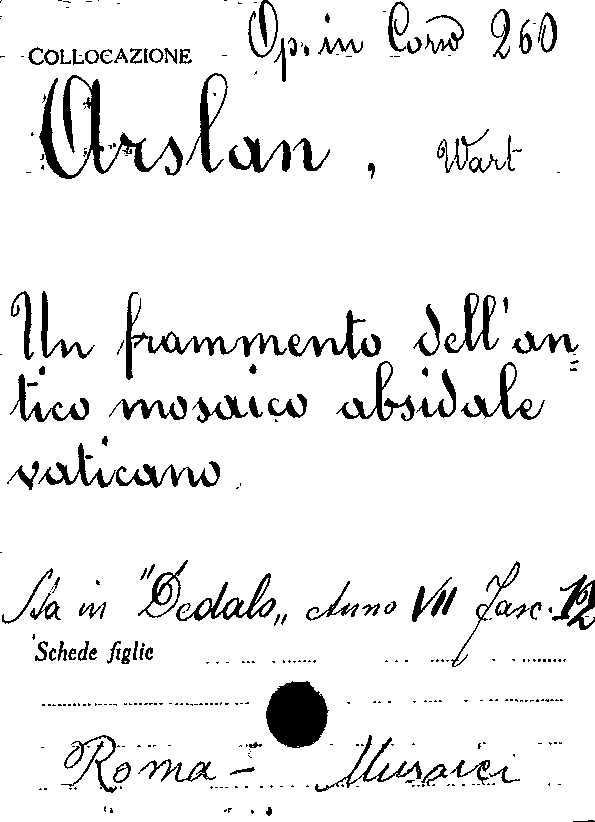 COLLOCAZIONE Op. in Corso 260
Arslan, Wart
Un frammento dell'an=
tico mosaico absidale
vaticano.
Sta in "Dedalo„ Anno VII Fasc. 12
Schede figlie
Roma - Musaici